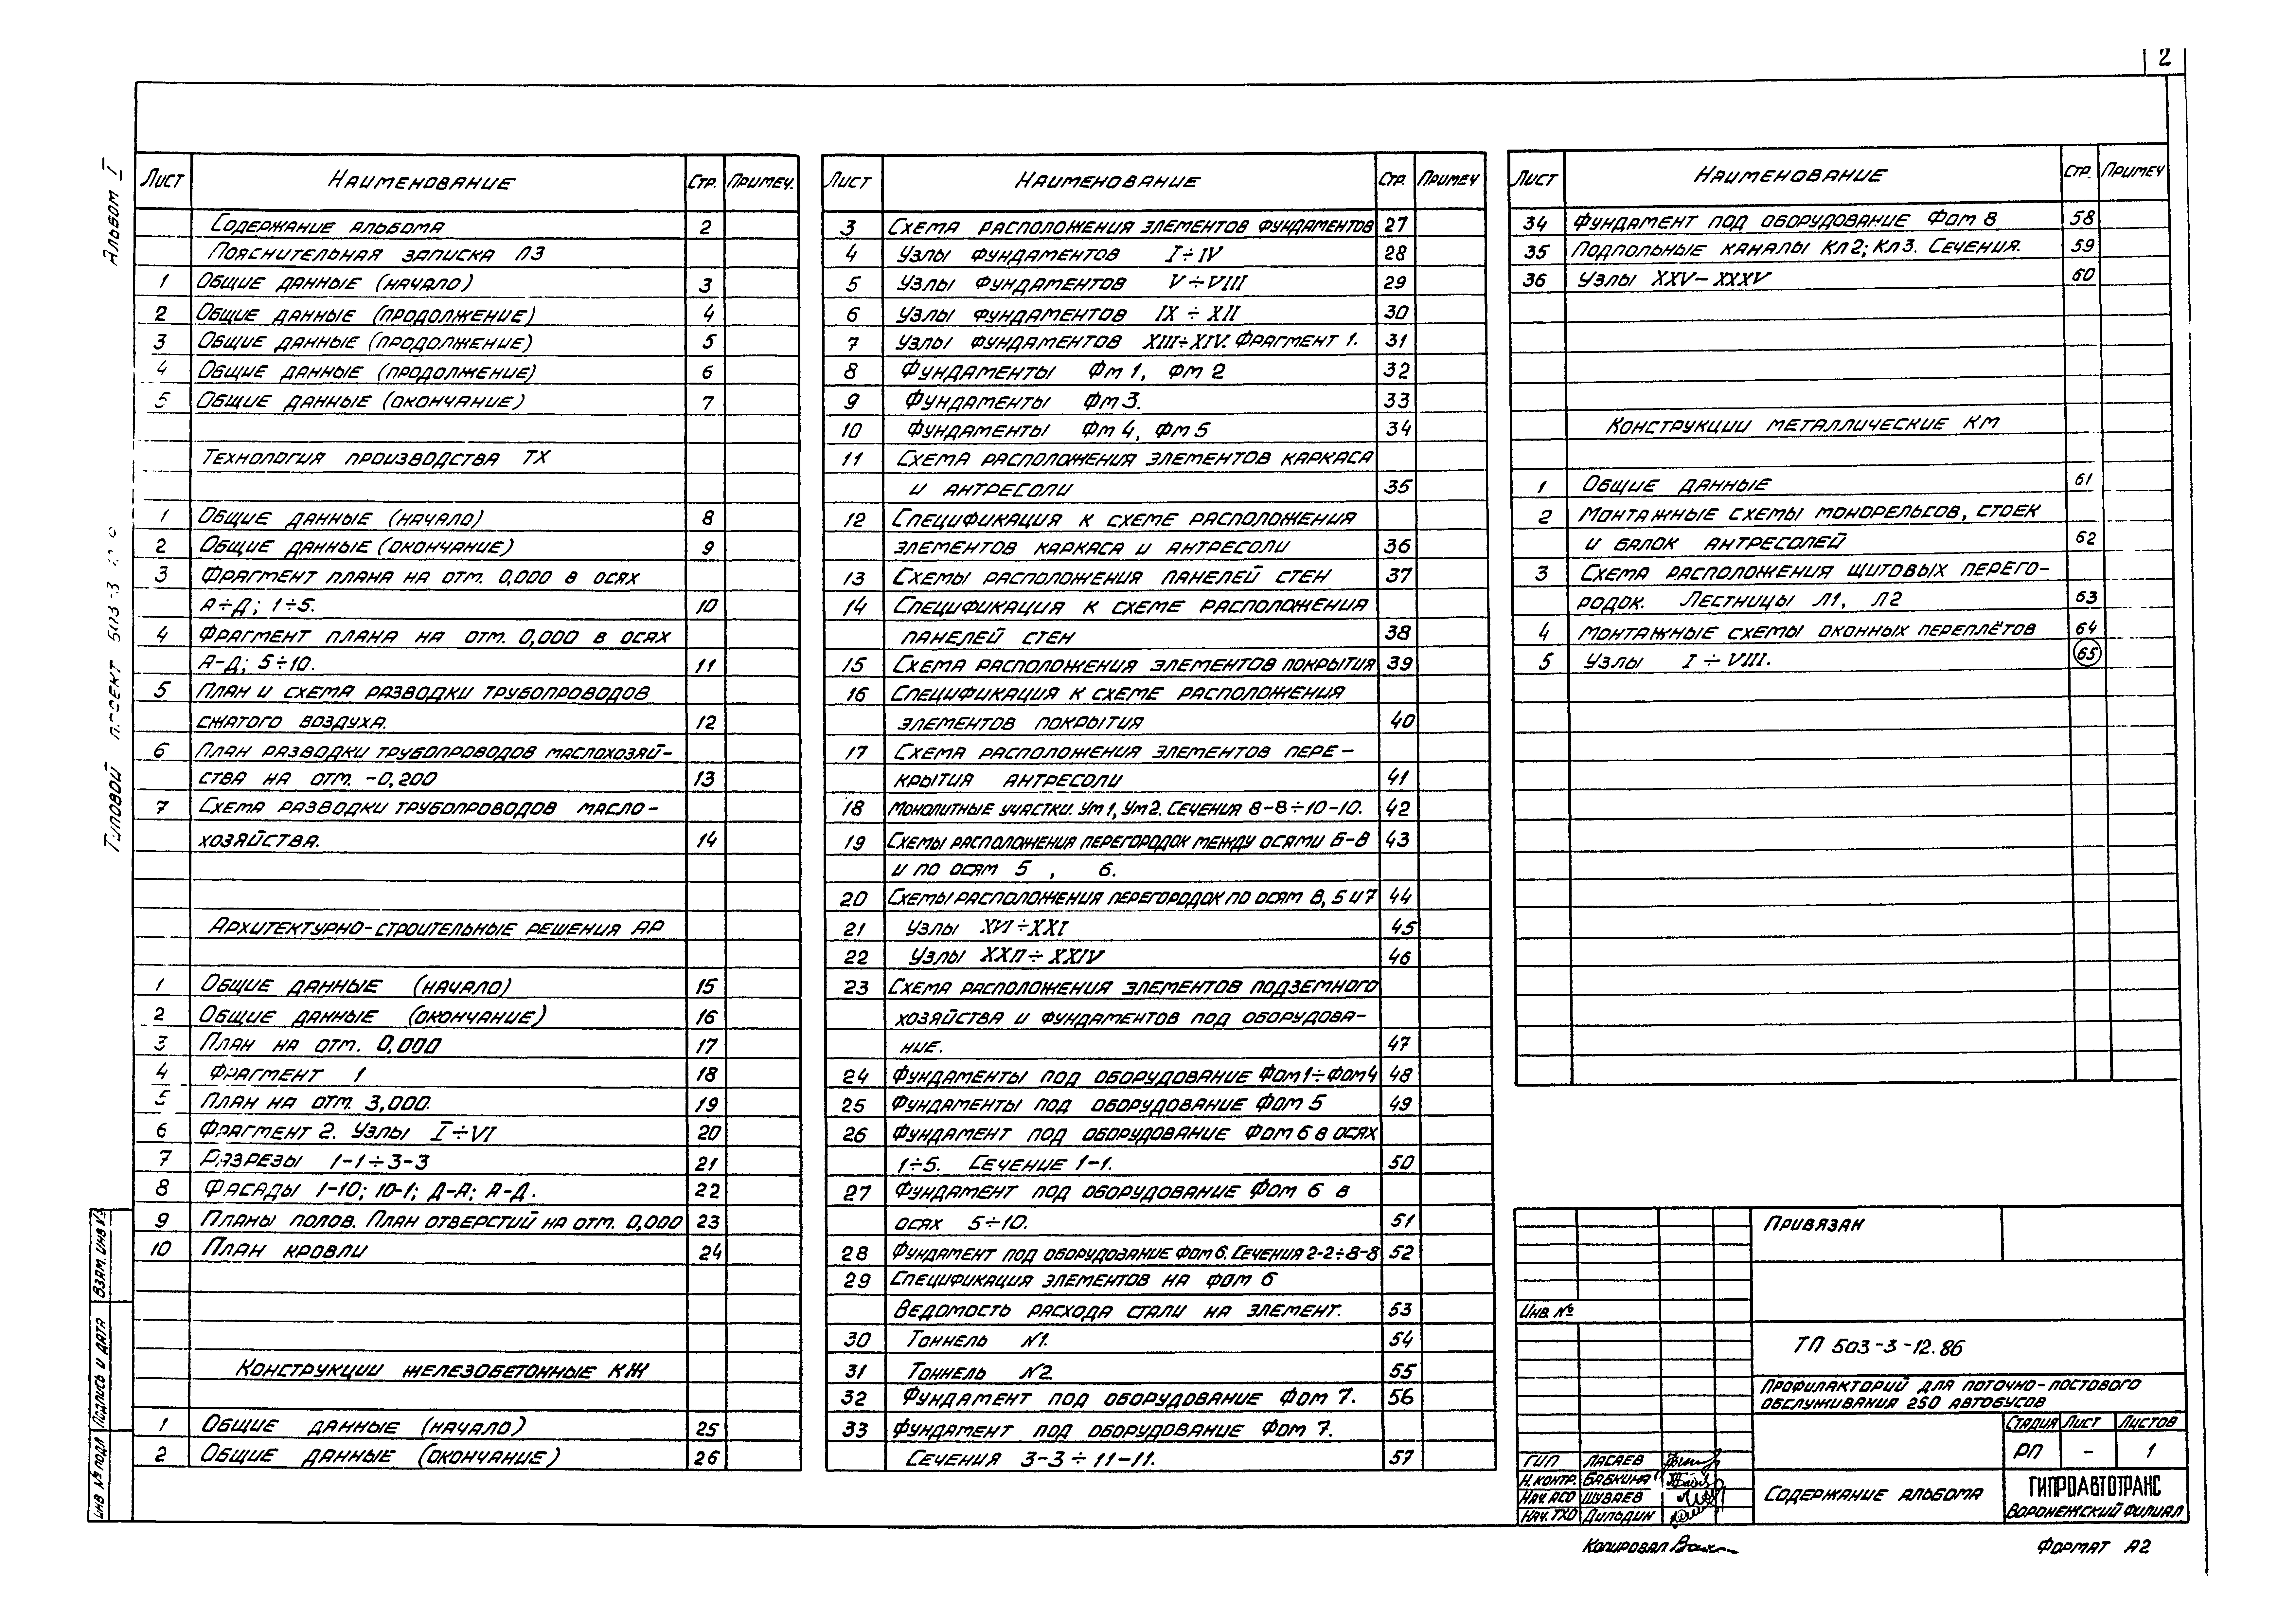 2
Альбом I
Типовой проект 503-3
Лист Наименование Стр. Примеч.
Содержание альбома 2
Пояснительная записка ПЗ
1 Общие данные (начало) 3
2 Общие данные (продолжение) 4
3 Общие данные (продолжение) 5
4 Общие данные (продолжение) 6
5 Общие данные (окончание) 7
Технология производства ТХ
1 Общие данные (начало) 8
2 Общие данные (окончание) 9
3 Фрагмент плана на отм. 0,000 в осях
А÷Д; 1÷5. 10
4 Фрагмент плана на отм. 0,000 в осях
А-Д; 5÷10. 11
5 План и схема разводки трубопроводов
сжатого воздуха. 12
6 План разводки трубопроводов маслохозяй-
ства на отм. -0,200 13
7 Схема разводки трубопроводов масло-
хозяйства. 14
Архитектурно-строительные решения АР
1 Общие данные (начало) 15
2 Общие данные (окончание) 16
3 План на отм. 0,000 17
4 Фрагмент 1 18
5 План на отм. 3,000. 19
6 Фрагмент 2. Узлы I÷VI 20
7 Разрезы 1-1÷3-3 21
8 Фасады 1-10; 10-1; Д-А; А-Д. 22
9 Планы полов. План отверстий на отм. 0,000 23
10 План кровли 24
Конструкции железобетонные КЖ
1 Общие данные (начало) 25
2 Общие данные (окончание) 26
Лист Наименование Стр. Примеч
3 Схема расположения элементов фундаментов 27
4 Узлы фундаментов I÷IV 28
5 Узлы фундаментов V÷VIII 29
6 Узлы фундаментов IX÷XII 30
7 Узлы фундаментов XIII÷XIV. Фрагмент 1. 31
8 Фундаменты Фм 1, Фм 2 32
9 Фундаменты Фм 3. 33
10 Фундаменты Фм 4, Фм 5 34
11 Схема расположения элементов каркаса
и антресоли 35
12 Спецификация к схеме расположения
элементов каркаса и антресоли 36
13 Схемы расположения панелей стен 37
14 Спецификация к схеме расположения
панелей стен 38
15 Схема расположения элементов покрытия 39
16 Спецификация к схеме расположения
элементов покрытия 40
17 Схема расположения элементов пере-
крытия антресоли 41
18 Монолитные участки. Ум1, Ум2. Сечения 8-8÷10-10. 42
19 Схемы расположения перегородок между осями Б-В 43
и по осям 5 , 6.
20 Схемы расположения перегородок по осям В, 5 и 7 44
21 Узлы XVI÷XXI 45
22 Узлы XXII÷XXIV 46
23 Схема расположения элементов подземного
хозяйства и фундаментов под оборудова-
ние. 47
24 Фундаменты под оборудование Фом1÷Фом4 48
25 Фундаменты под оборудование Фом 5 49
26 Фундамент под оборудование Фом 6 в осях
1÷5. Сечение 1-1. 50
27 Фундамент под оборудование Фом 6 в
осях 5÷10. 51
28 Фундамент под оборудование Фом 6. Сечения 2-2÷8-8 52
29 Спецификация элементов на Фом 6
Ведомость расхода стали на элемент. 53
30 Тоннель №1. 54
31 Тоннель №2. 55
32 Фундамент под оборудование Фом 7. 56
33 Фундамент под оборудование Фом 7.
Сечения 3-3÷11-11. 57
Лист Наименование Стр. Примеч
34 Фундамент под оборудование Фом 8 58
35 Подпольные каналы Кл2; Кл3. Сечения. 59
36 Узлы XXV-XXXV 60
Конструкции металлические КМ
1 Общие данные 61
2 Монтажные схемы монорельсов, стоек
и балок антресолей 62
3 Схема расположения щитовых перего-
родок. Лестницы Л1, Л2 63
4 Монтажные схемы оконных переплётов 64
5 Узлы I÷VIII. 65
Привязан
Инв. №
ТП 503-3-12.86
Профилакторий для поточно-постового
обслуживания 250 автобусов
Стадия Лист Листов
РП - 1
ГИП Ласаев
Н.контр. Бабкина
Нач. АСО Шуваев
Нач. ТХО Дильдин
Содержание альбома
ГИПРОАВТОТРАНС
Воронежский филиал
Копировал
Формат А2
Инв № подл
Подпись и дата
Взам. инв №